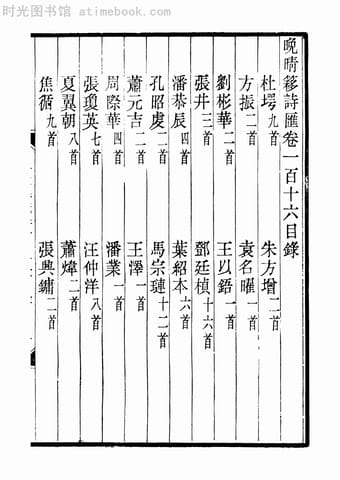 时光图书馆 - atimebook.com
晚晴簃詩匯卷一百十六目錄
杜堮九首 朱方增二首
方振二首 袁名曜一首
劉彬華二首 王以銜一首
張井三首 鄧廷楨十六首
潘恭辰四首 葉紹本六首
孔昭虔二首 馬宗璉十二首
蕭元吉二首 王澤一首
周際華四首 潘業一首
張瓊英七首 汪仲洋八首
夏翼朝八首 蕭煒二首
焦循九首 張興鏞二首